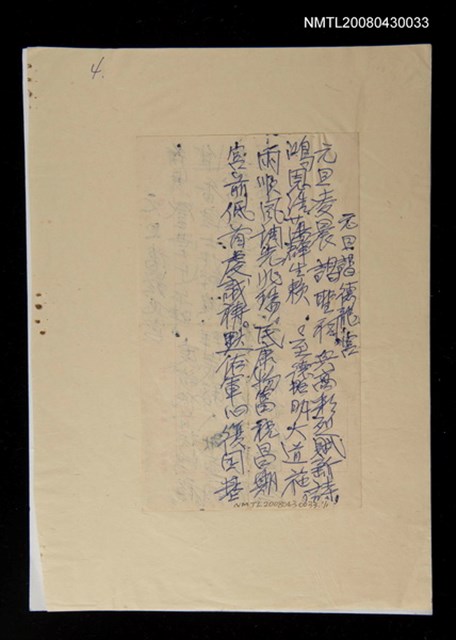 NMTL20080430033
4.
元旦謁龍宮
元旦凌晨謁聖祠 興高彩烈賦新詩
鴻恩浩蕩群生賴 至德 明大道施
雨順風調先兆 民康物富祝昌期
宮前低首虔誠禱 默佑軍心復國基
NMTL20080430033